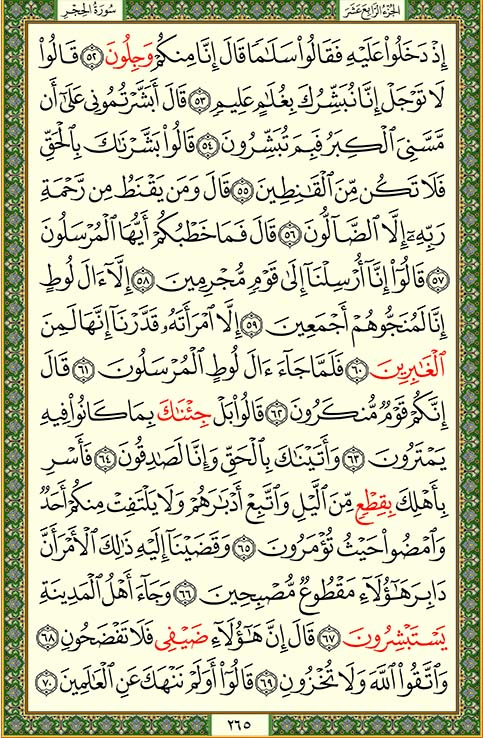 الجُزءُ الرَّابِعَ عَشَرَ سُورَةُ الحِجْرِ
إِذْ دَخَلُوا۟ عَلَيْهِ فَقَالُوا۟ سَلَٰمًا قَالَ إِنَّا مِنكُمْ وَجِلُونَ ٥٢ قَالُوا۟
لَا تَوْجَلْ إِنَّا نُبَشِّرُكَ بِغُلَٰمٍ عَلِيمٍ ٥٣ قَالَ أَبَشَّرْتُمُونِى عَلَىٰٓ أَن
مَّسَّنِىَ ٱلْكِبَرُ فَبِمَ تُبَشِّرُونَ ٥٤ قَالُوا۟ بَشَّرْنَٰكَ بِٱلْحَقِّ
فَلَا تَكُن مِّنَ ٱلْقَٰنِطِينَ ٥٥ قَالَ وَمَن يَقْنَطُ مِن رَّحْمَةِ
رَبِّهِۦٓ إِلَّا ٱلضَّآلُّونَ ٥٦ قَالَ فَمَا خَطْبُكُمْ أَيُّهَا ٱلْمُرْسَلُونَ
٥٧ قَالُوٓا۟ إِنَّآ أُرْسِلْنَآ إِلَىٰ قَوْمٍ مُّجْرِمِينَ ٥٨ إِلَّآ ءَالَ لُوطٍ
إِنَّا لَمُنَجُّوهُمْ أَجْمَعِينَ ٥٩ إِلَّا ٱمْرَأَتَهُۥ قَدَّرْنَآ إِنَّهَا لَمِنَ
ٱلْغَٰبِرِينَ ٦٠ فَلَمَّا جَآءَ ءَالَ لُوطٍ ٱلْمُرْسَلُونَ ٦١ قَالَ
إِنَّكُمْ قَوْمٌ مُّنكَرُونَ ٦٢ قَالُوا۟ بَلْ جِئْنَٰكَ بِمَا كَانُوا۟ فِيهِ
يَمْتَرُونَ ٦٣ وَأَتَيْنَٰكَ بِٱلْحَقِّ وَإِنَّا لَصَٰدِقُونَ ٦٤ فَأَسْرِ
بِأَهْلِكَ بِقِطْعٍ مِّنَ ٱلَّيْلِ وَٱتَّبِعْ أَدْبَٰرَهُمْ وَلَا يَلْتَفِتْ مِنكُمْ أَحَدٌ
وَٱمْضُوا۟ حَيْثُ تُؤْمَرُونَ ٦٥ وَقَضَيْنَآ إِلَيْهِ ذَٰلِكَ ٱلْأَمْرَ أَنَّ
دَابِرَ هَٰٓؤُلَآءِ مَقْطُوعٌ مُّصْبِحِينَ ٦٦ وَجَآءَ أَهْلُ ٱلْمَدِينَةِ
يَسْتَبْشِرُونَ ٦٧ قَالَ إِنَّ هَٰٓؤُلَآءِ ضَيْفِى فَلَا تَفْضَحُونِ ٦٨
وَٱتَّقُوا۟ ٱللَّهَ وَلَا تُخْزُونِ ٦٩ قَالُوٓا۟ أَوَلَمْ نَنْهَكَ عَنِ ٱلْعَٰلَمِينَ ٧٠
٢٦٥